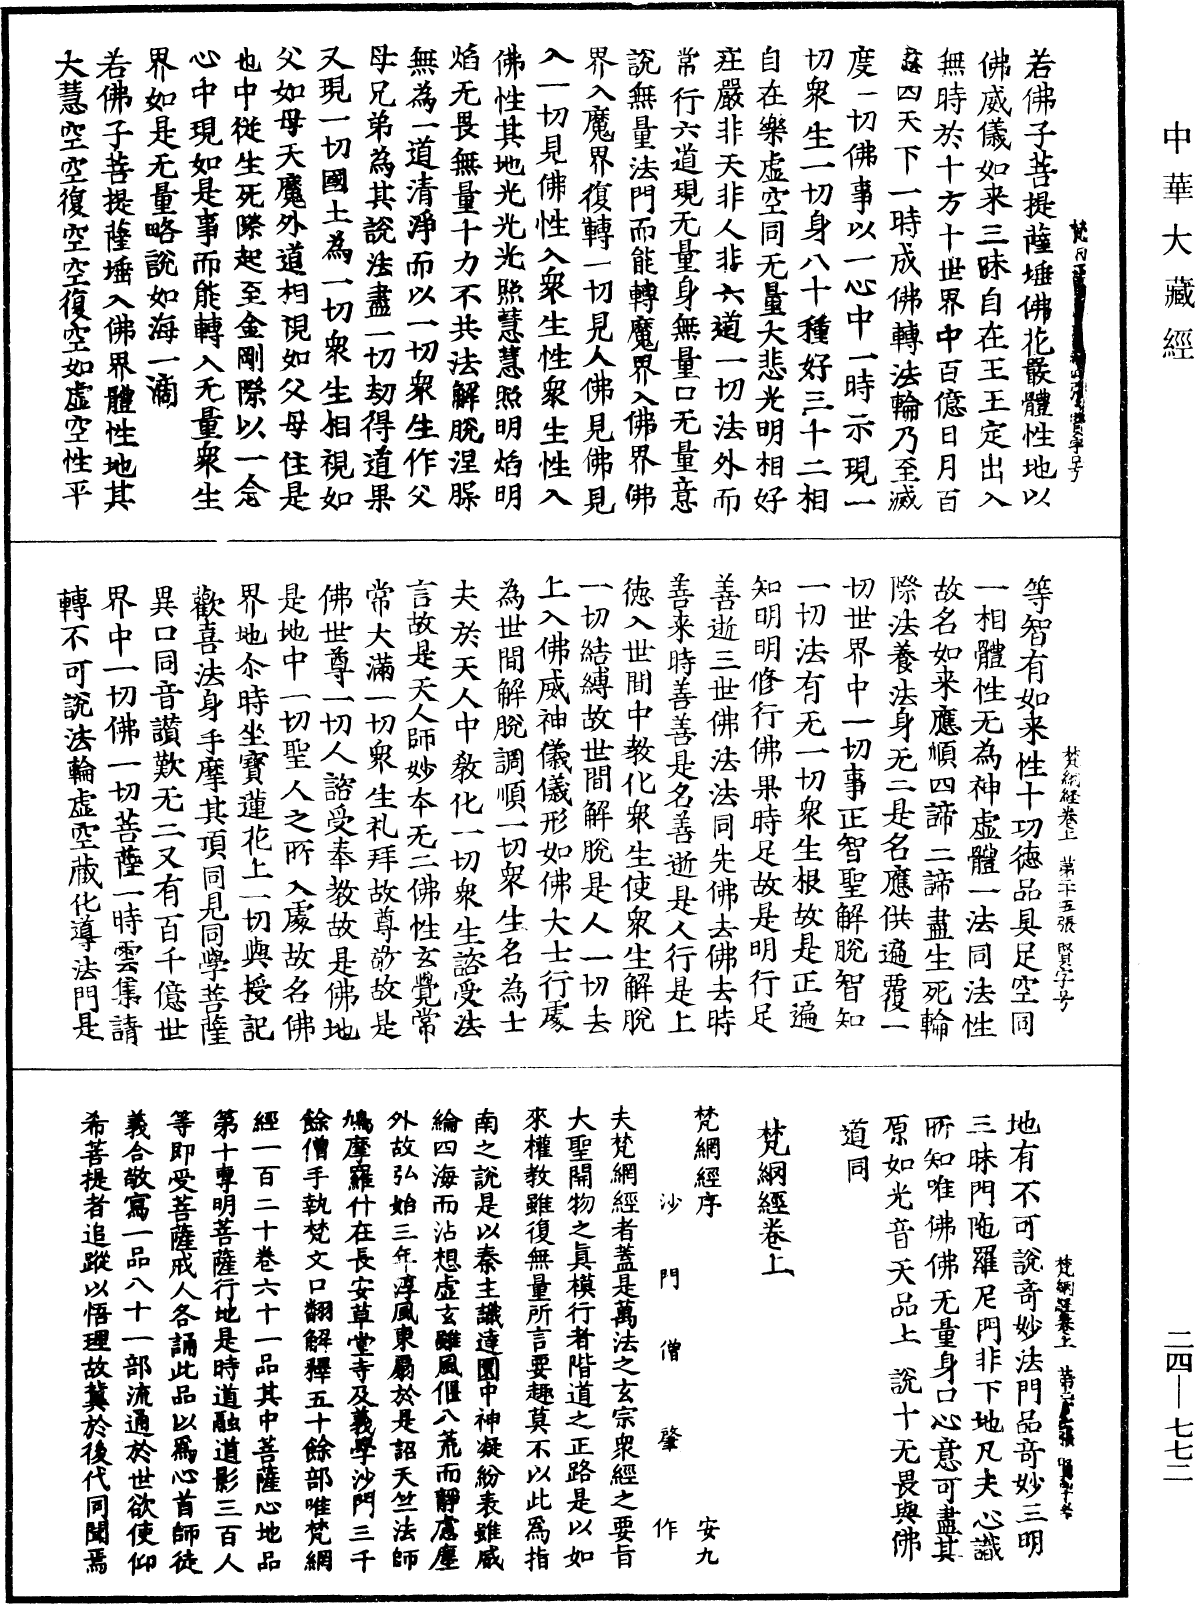 中華大藏經
若佛子菩提薩埵佛花嚴體性地以
佛威儀如来三昧自在王王定出入
無時於十方十世界中百億日月百
億四天下一時成佛轉法輪乃至滅
度一切佛事以一心中一時示現一
切衆生一切身八十種好三十二相
自在樂虚空同无量大悲光明相好
莊嚴非天非人非六道一切法外而
常行六道現无量身無量口无量意
說無量法門而能轉魔界入佛界佛
界入魔界復轉一切見人佛見佛見
入一切見佛性入衆生性衆生性入
佛性其地光光光照慧慧照明焰明
焰无畏無量十力不共法解脫涅脲
無為一道清淨而以一切衆生作父
母兄弟為其說法盡一切劫得道果
又現一切國土為一切衆生相視如
父如母天魔外道相視如父母住是
地中從生死際起至金剛際以一念
心中現如是事而能轉入无量衆生
界如是无量略說如海一滴
若佛子菩提薩埵入佛界體性地其
大慧空空復空空復空如虚空性平
梵網經卷上 第二十五張 賢字号
等智有如来性十功德品具足空同
一相體性无為神虚體一法同法性
故名如来應順四諦二諦盡生死輪
際法養法身无二是名應供遍覆一
切世界中一切事正智聖解脫智知
一切法有无一切衆生根故是正遍
知明明修行佛果時足故是明行足
善逝三世佛法法同先佛去佛去時
善来時善善是名善逝是人行是上
德入世間中教化衆生使衆生解脫
一切結縛故世間解脫是人一切去
上入佛威神儀儀形如佛大士行處
為世間解脫調順一切衆生名為士
夫於天人中教化一切衆生諮受法
言故是天人師妙本无二佛性玄覺常
常大滿一切衆生礼拜故尊敬故是
佛世尊一切人諮受奉教故是佛地
是地中一切聖人之所入處故名佛
界地尒時坐寶蓮花上一切與授記
歡喜法身手摩其頂同見同學菩薩
異口同音讃歎无二又有百千億世
界中一切佛一切菩薩一時雲集請
轉不可說法輪虚空蔵化導法門是
地有不可說奇妙法門品奇妙三明
三昧門陁羅尼門非下地凡夫心識
所知唯佛佛无量身口心意可盡其
原如光音天品上說十无畏與佛
道同
梵網經卷上
梵網經序 安九
沙門僧肇作
夫梵網經者蓋是萬法之玄宗衆經之要旨
大聖開物之真模行者階道之正路是以如
來權教雖復無量所言要趣莫不以此爲指
南之說是以秦主識達圜中神凝紛表雖威
綸四海而沾想虚玄雖風偃八荒而靜慮塵
外故弘始三年淳風東扇於是詔天竺法師
鳩摩羅什在長安草堂寺及義學沙門三千
餘僧手執梵文口翻解釋五十餘部唯梵網
經一百二十卷六十一品其中菩薩心地品
第十專明菩薩行地是時道融道影三百人
等即受菩薩戒人各誦此品以爲心首師徒
義合敬寫一品八十一部流通於世欲使仰
希菩提者追蹤以悟理故冀於後代同聞焉
二四—七七二